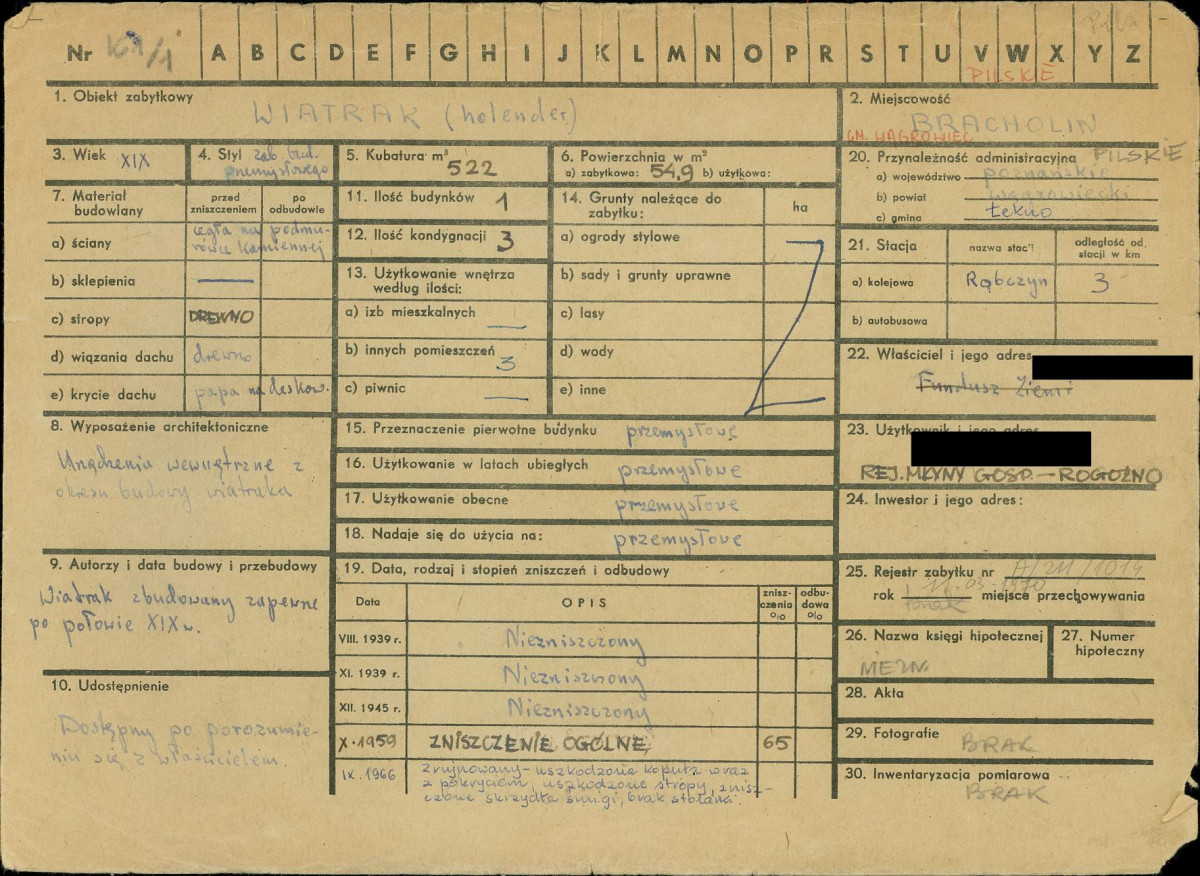 Piła
Nr KA/1 A B C D E F G H I J K L M N O P R S T U V W X Y Z
PILSKIE
1. Obiekt zabytkowy
WIATRAK (holender)
2. Miejscowość
BRACHOLIN
GM. WĄGROWIEC
3. Wiek XIX
4. Styl zab. bud. przemysłowego
5. Kubatura m³ 522
6. Powierzchnia w m²
a) zabytkowa: 54,9 b) użytkowa:
20. Przynależność administracyjna PILSKIE
a) województwo poznańskie
b) powiat wągrowiecki
c) gmina Łekno
7. Materiał budowlany
przed zniszczeniem
po odbudowie
a) ściany cegła na podmurówce kamiennej
b) sklepienia —
c) stropy DREWNO
d) wiązania dachu drewno
e) krycie dachu papa na deskow.
11. Ilość budynków 1
12. Ilość kondygnacji 3
13. Użytkowanie wnętrza według ilości:
a) izb mieszkalnych —
b) innych pomieszczeń 3
c) piwnic —
14. Grunty należące do zabytku:
ha
a) ogrody stylowe
b) sady i grunty uprawne
c) lasy
d) wody
e) inne
21. Stacja
nazwa stacji
odległość od stacji w km
a) kolejowa Rąbczyn 3
b) autobusowa
22. Właściciel i jego adres
Fundusz Ziemi
8. Wyposażenie architektoniczne
Urządzenia wewnętrzne z
okresu budowy wiatraka
15. Przeznaczenie pierwotne budynku przemysłowe
16. Użytkowanie w latach ubiegłych przemysłowe
17. Użytkowanie obecne przemysłowe
18. Nadaje się do użycia na: przemysłowe
23. Użytkownik i jego adres
REJ. MŁYNY GOSP. — ROGOŹNO
24. Inwestor i jego adres:
9. Autorzy i data budowy i przebudowy
Wiatrak zbudowany zapewne
po połowie XIX w.
10. Udostępnienie
Dostępny po porozumie-
niu się z właścicielem.
19. Data, rodzaj i stopień zniszczeń i odbudowy
Data
OPIS
zniszczenia %
odbudowa %
VIII. 1939 r. Niezniszczony
XI. 1939 r. Niezniszczony
XII. 1945 r. Niezniszczony
X. 1959 ZNISZCZENIE OGÓLNE 65
IX. 1966 Zrujnowany - uszkodzona kopuła wraz
z pokryciem, uszkodzone stropy, znisz-
czone skrzydła śmigi, brak stolarki.
25. Rejestr zabytku nr A/211/1014
rok 11.03.1970 miejsce przechowywania
26. Nazwa księgi hipotecznej
NIEZN.
27. Numer hipoteczny
28. Akta
29. Fotografie BRAK
30. Inwentaryzacja pomiarowa
BRAK